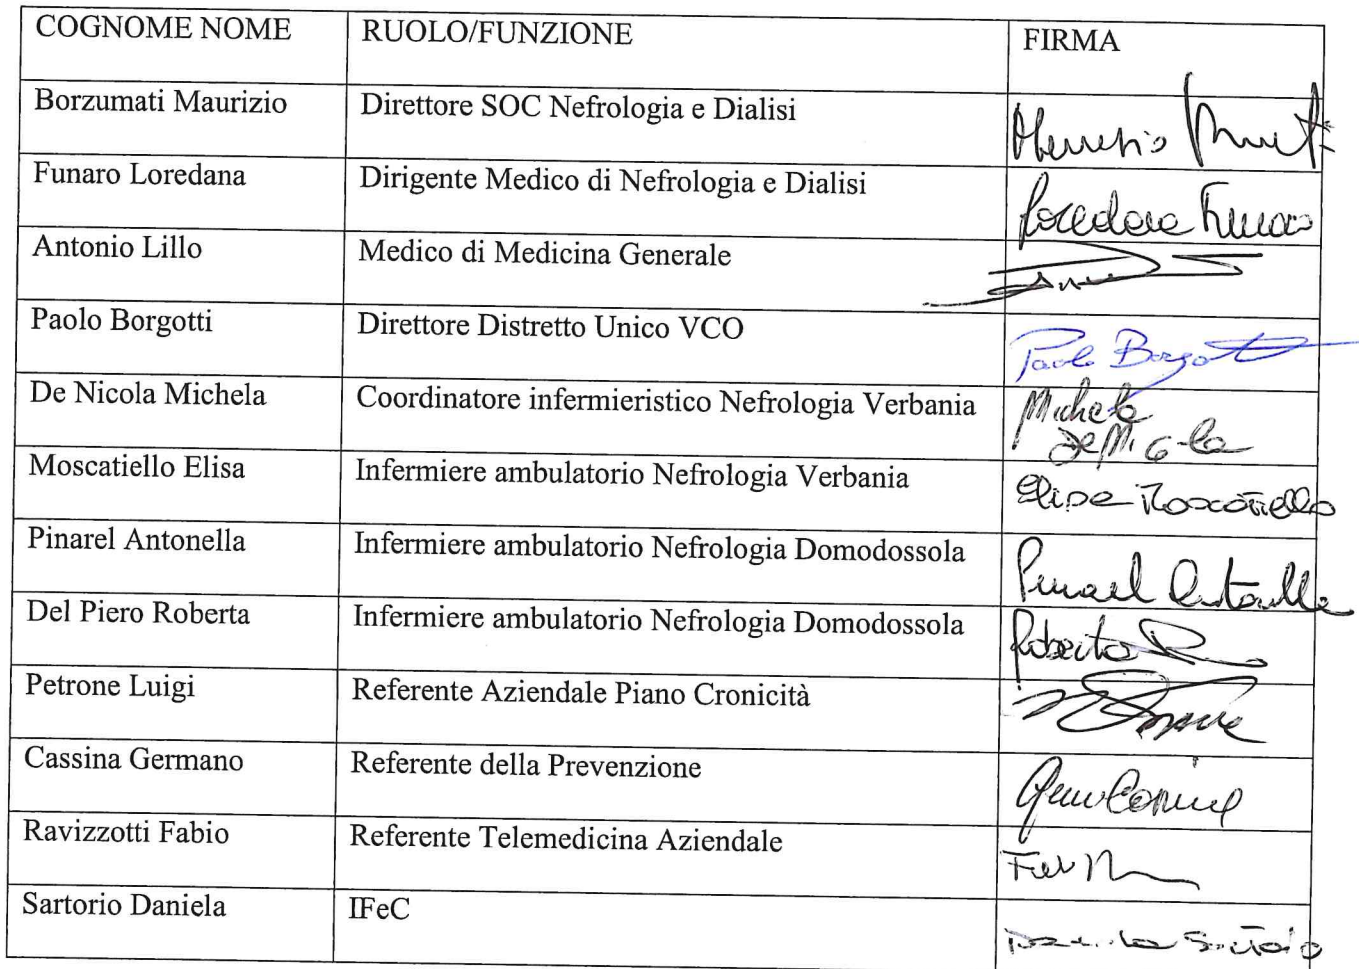 COGNOME NOME RUOLO/FUNZIONE FIRMA
Borzumati Maurizio Direttore SOC Nefrologia e Dialisi
Funaro Loredana Dirigente Medico di Nefrologia e Dialisi Loredana Funaro
Antonio Lillo Medico di Medicina Generale
Paolo Borgotti Direttore Distretto Unico VCO Paolo Borgotti
De Nicola Michela Coordinatore infermieristico Nefrologia Verbania Michela
De Nicola
Moscatiello Elisa Infermiere ambulatorio Nefrologia Verbania Elisa Moscatiello
Pinarel Antonella Infermiere ambulatorio Nefrologia Domodossola Pinarel Antonella
Del Piero Roberta Infermiere ambulatorio Nefrologia Domodossola Roberta
Petrone Luigi Referente Aziendale Piano Cronicità
Cassina Germano Referente della Prevenzione
Ravizzotti Fabio Referente Telemedicina Aziendale
Sartorio Daniela IFeC Daniela Sartorio